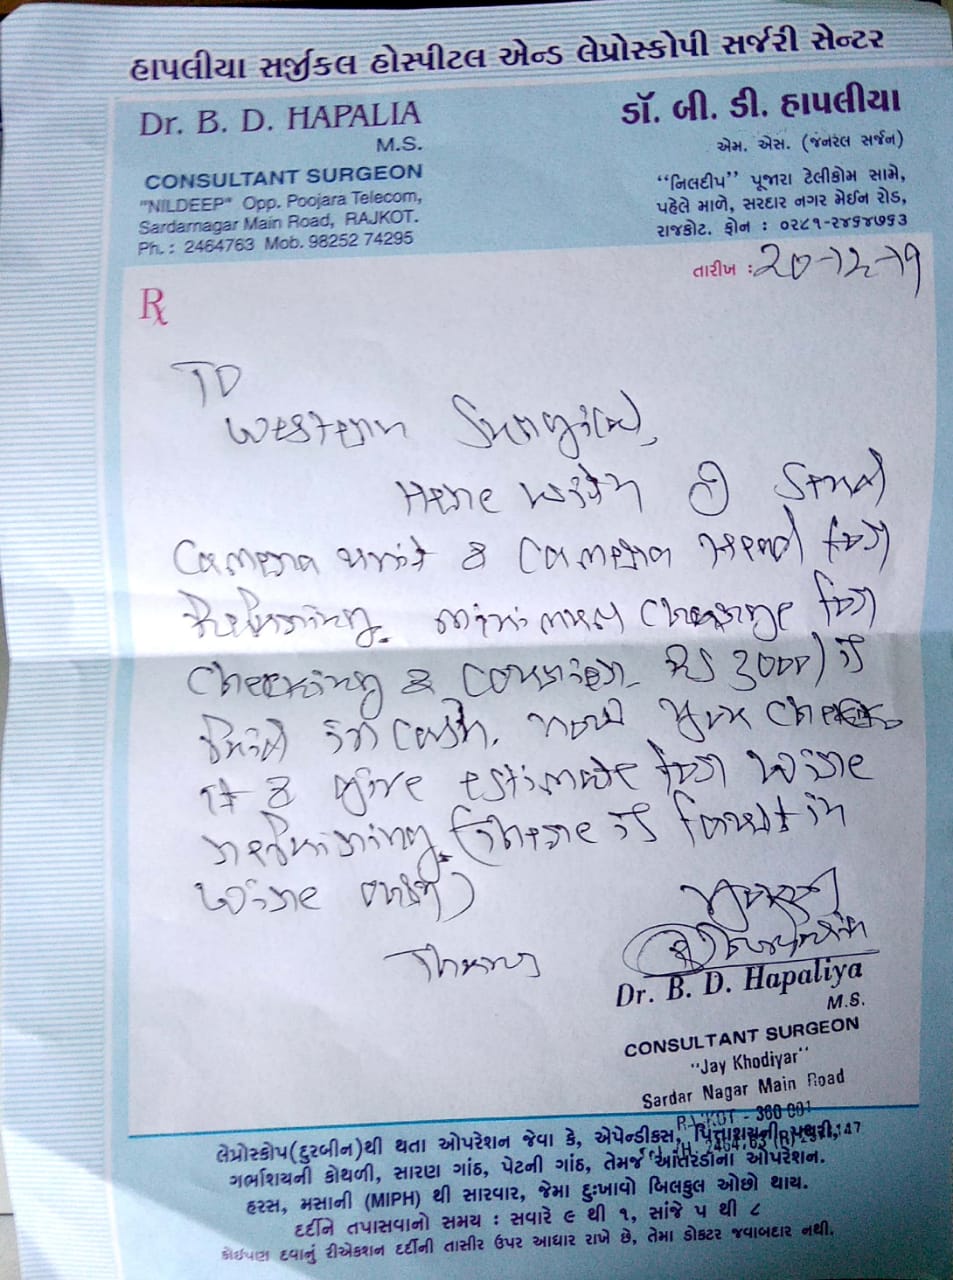 હાપલીયા સર્જીકલ હોસ્પીટલ એન્ડ લેપ્રોસ્કોપી સર્જરી સેન્ટર
Dr. B. D. HAPALIA
M.S.
CONSULTANT SURGEON
"NILDEEP" Opp. Poojara Telecom,
Sardarnagar Main Road, RAJKOT.
Ph. : 2464763 Mob. 98252 74295
ડૉ. બી. ડી. હાપલીયા
એમ. એસ. (જનરલ સર્જન)
"નિલદીપ" પૂજારા ટેલીકોમ સામે,
પહેલે માળે, સરદાર નગર મેઈન રોડ,
રાજકોટ. ફોન : ૦૨૮૧-૨૪૬૪૭૬૩
તારીખ : 20-12-19
Rx
TO
Western Surgical,
Here with I send
Camera unit & Camera head for
Repairing. minimum charge for
checking & courier Rs 3000/ is
Paid in cash. now you check
it & give estimate for wire
repairing. (there is fault in
wire only)
Thanks
Dr. B. D. Hapaliya
M.S.
CONSULTANT SURGEON
"Jay Khodiyar"
Sardar Nagar Main Road
RAJKOT - 360 001
લેપ્રોસ્કોપ(દુરબીન)થી થતા ઓપરેશન જેવા કે, એપેન્ડીક્સ, પિત્તાશયની પથરી,
ગર્ભાશયની કોથળી, સારણ ગાંઠ, પેટની ગાંઠ, તેમજ આંતરડાના ઓપરેશન.
હરસ, મસાની (MIPH) થી સારવાર, જેમા દુઃખાવો બિલકુલ ઓછો થાય.
દર્દીને તપાસવાનો સમય : સવારે ૯ થી ૧, સાંજે ૫ થી ૮
કોઈપણ દવાનું રીએક્શન દર્દીની તાસીર ઉપર આધાર રાખે છે, તેમા ડોકટર જવાબદાર નથી.